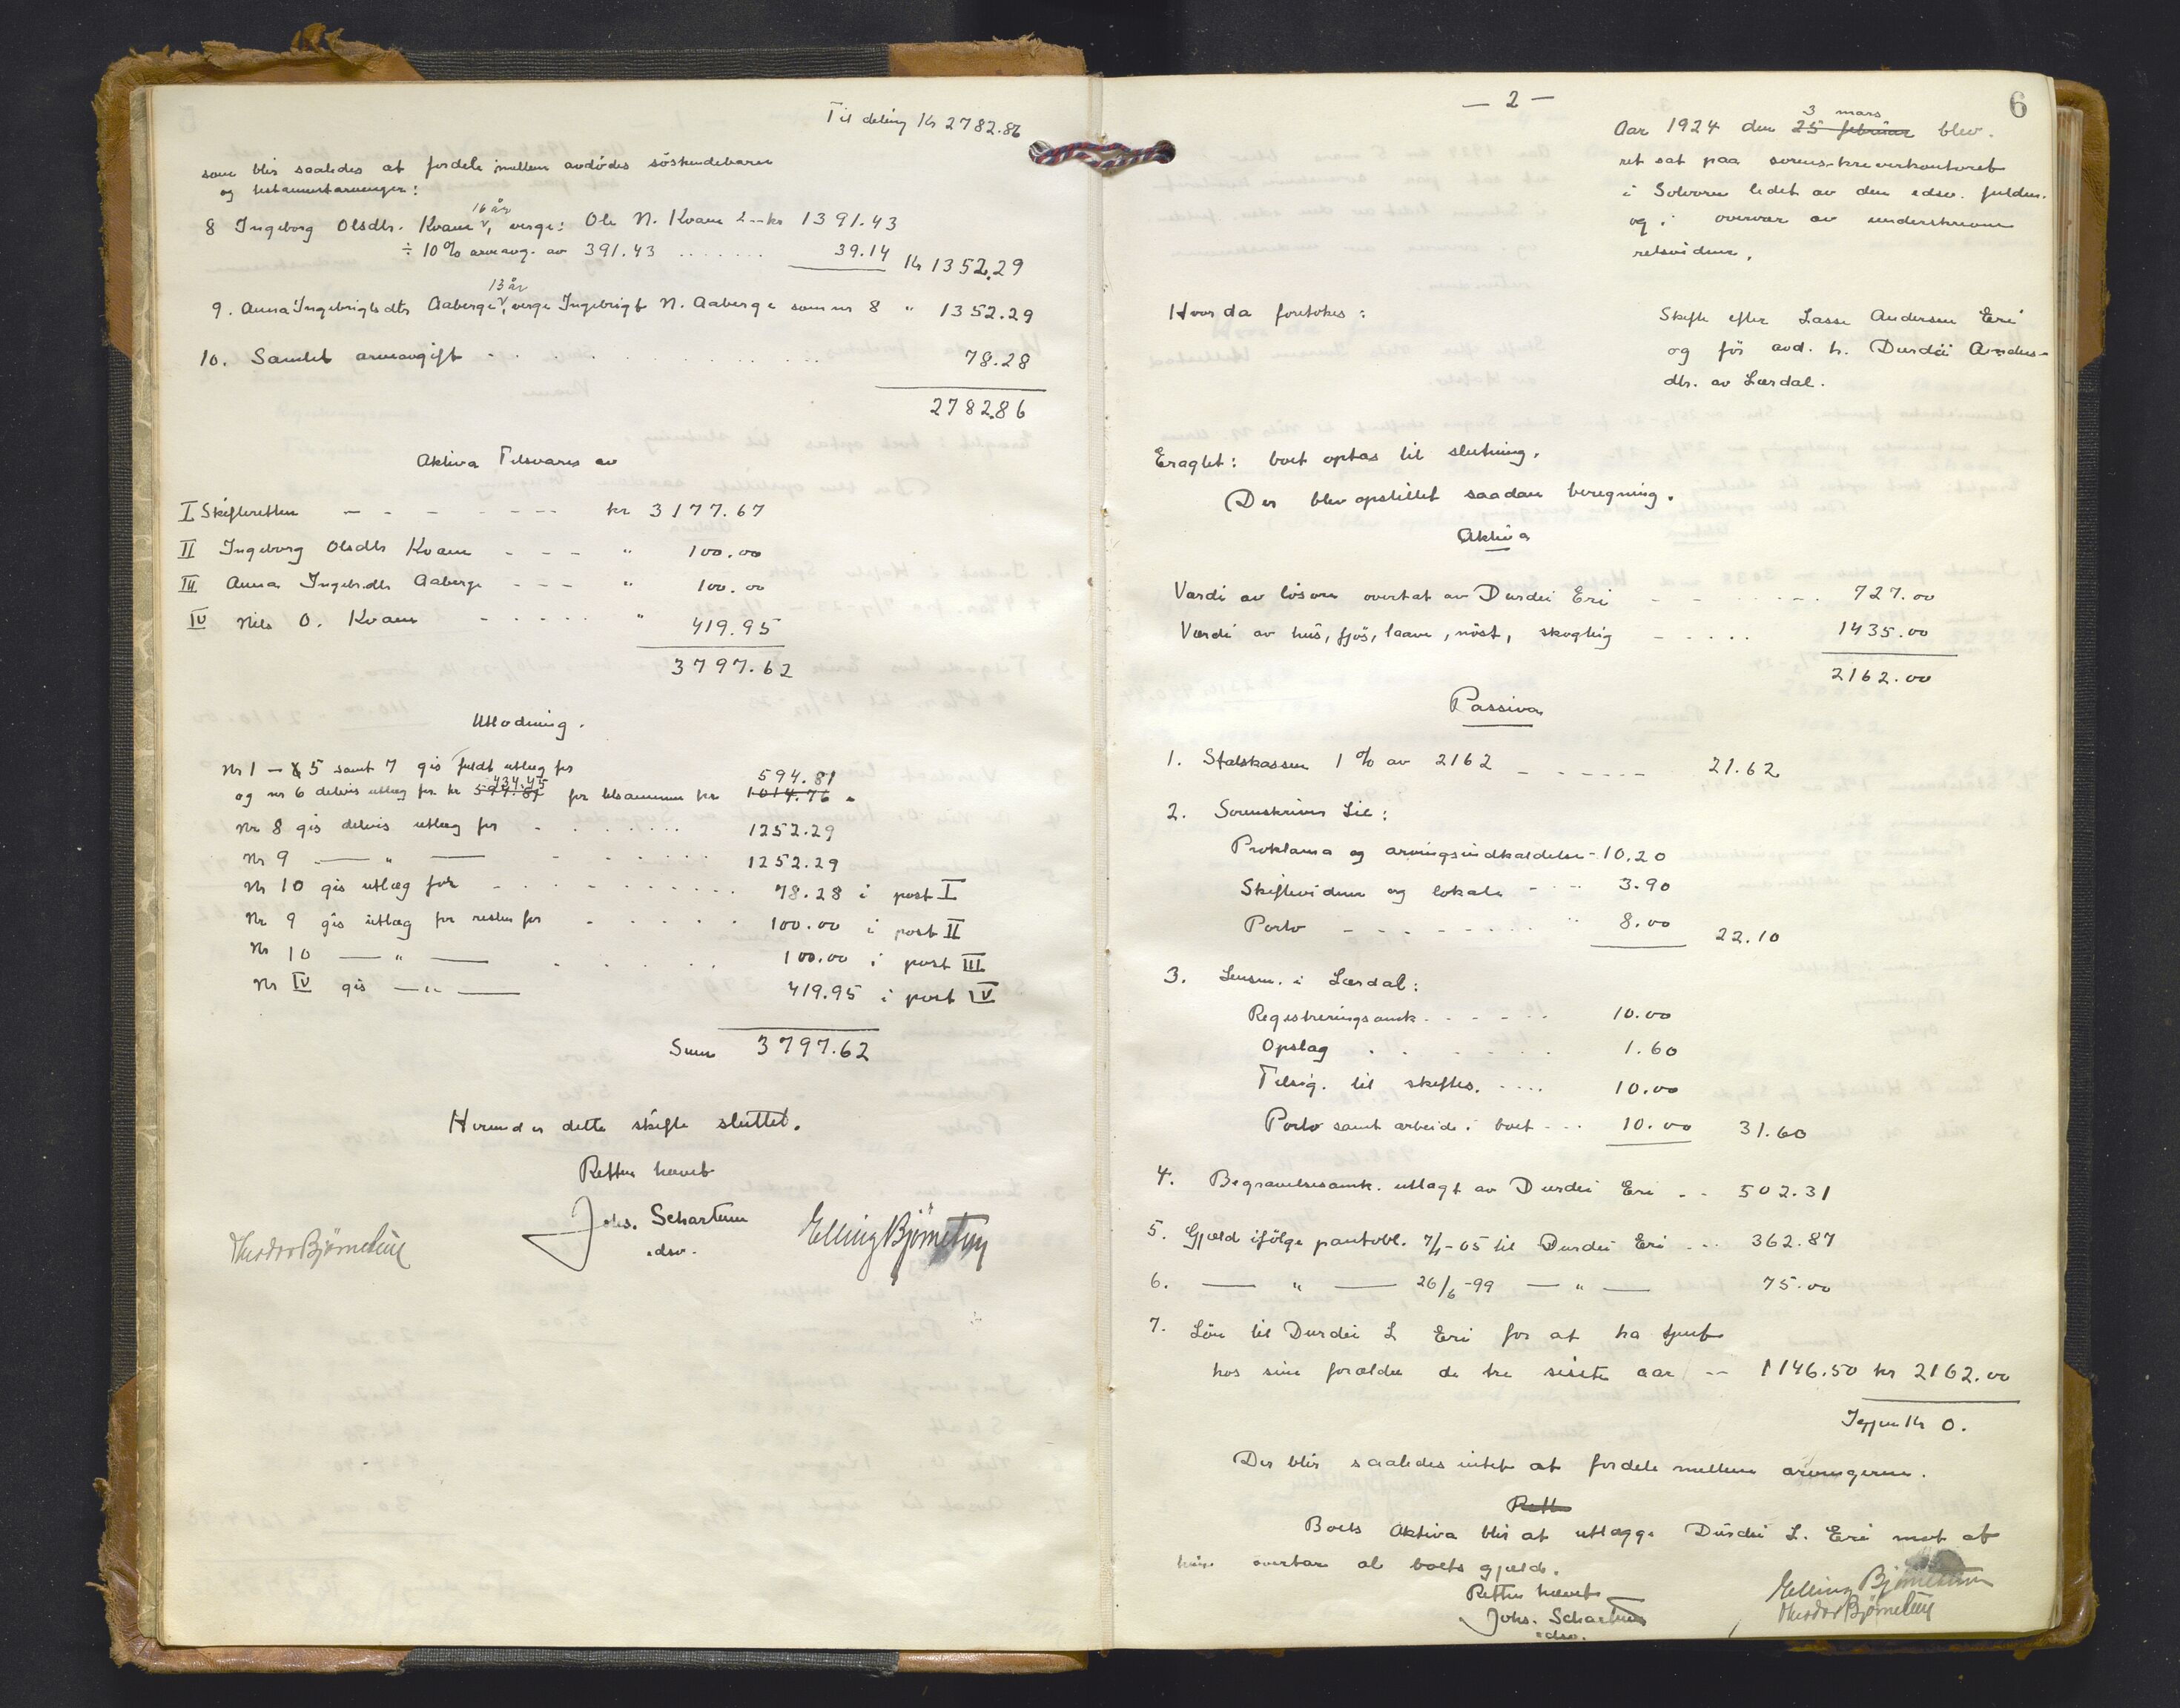 Til deling Kr 2782.86
som blir saaledes at fordele mellem avdödes söskendebarn
og testamentarvinger:
16 år
8 Ingeborg Olsdtr. Kvam v, verge: Ole N. Kvam kr 1391.43
÷ 10% arveavg. av 391.43 ....... 39.14 Kr 1352.29
13 år
9. Anna Ingebrigtsdtr Aaberge v, verge Ingebrigt N. Aaberge som nr 8 " 1352.29
10. Samlet arveavgift - . . . . . . 78.28
2782.86
Aktiva Tilsvares av
I Skifteretten - - - - - - - kr 3177.67
II Ingeborg Olsdtr Kvam - - - " 100.00
III Anna Ingebr.dtr Aaberge - - - " 100.00
IV Nils O. Kvam - . . . . " 419.95
3797.62
Utlodning.
Nr 1 - 5 samt 7 gis fuldt utlæg for
434.45 594.81
og nr 6 delvis utlæg for kr 594.81 for tilsammen kr 1014.76 .
Nr 8 gis delvis utlæg for . . . . . . 1252.29
Nr 9 — " — - . . . . . 1252.29
Nr 10 gis utlæg for - . . . . . . . 78.28 i post I
Nr 9 gis utlæg for resten for . . . . . 100.00 i post II
Nr 10 — " — . . . . . 100.00 i post III
Nr IV gis — " — 419.95 i post IV
Sum 3797.62
Herved er dette skifte sluttet.
Retten hævet
Johs. Schartum
edsv.
Theodor Bjørnetun
Elling Bjørnetun
— 2 —
6
3 mars
Aar 1924 den 25 februar blev
ret sat paa sorenskriverkontoret
i Solvorn ledet av den edsv. fuldm.
og i overvær av underskrevne
retsvidner.
Hvor da foretokes:
Skifte efter Lasse Andersen Eri
og før avd. h. Durdei Anders-
dtr. av Lærdal.
Eragtet: boet optas til slutning.
Der blev opstillet saadan beregning.
Aktiva
Værdi av lösöre overtat av Durdei Eri - - . . . . 727.00
Værdi av hus, fjös, laave, nöst, skogteig - . . . . 1435.00
2162.00
Passiva
1. Statskassen 1% av 2162 - - - - - - 21.62
2. Sorenskriver Lie:
Proklama og arvingsindkaldelse - 10.20
Skiftevidner og lokale - - - 3.90
Porto - - - - . . . " 8.00 22.10
3. Lensm. i Lærdal:
Registreringsomk. - - - - - 10.00
Opslag . . . . . . 1.60
Tilsig. til skiftes. - . . . 10.00
Porto samt arbeide i boet - . . 10.00 31.60
4. Begravelsesomk. utlagt av Durdei Eri . . 502.31
5. Gjæld ifölge pantobl. 7/1-05 til Durdei Eri . . . 362.87
6. — " — 26/6-99 — " — 75.00
7. Lön til Durdei L Eri for at ha tjent
hos sine forældre de tre siste aar - - 1146.50 kr 2162.00
Igjen Kr 0.
Der blir saaledes intet at fordele mellem arvingerne.
Rett
Boets Aktiva blir at utlægge Durdei L. Eri mot at
hun overtar al boets gjæld.
Retten hævet
Johs. Schartum
edsv.
Elling Bjørnetun
Theodor Bjørnetun